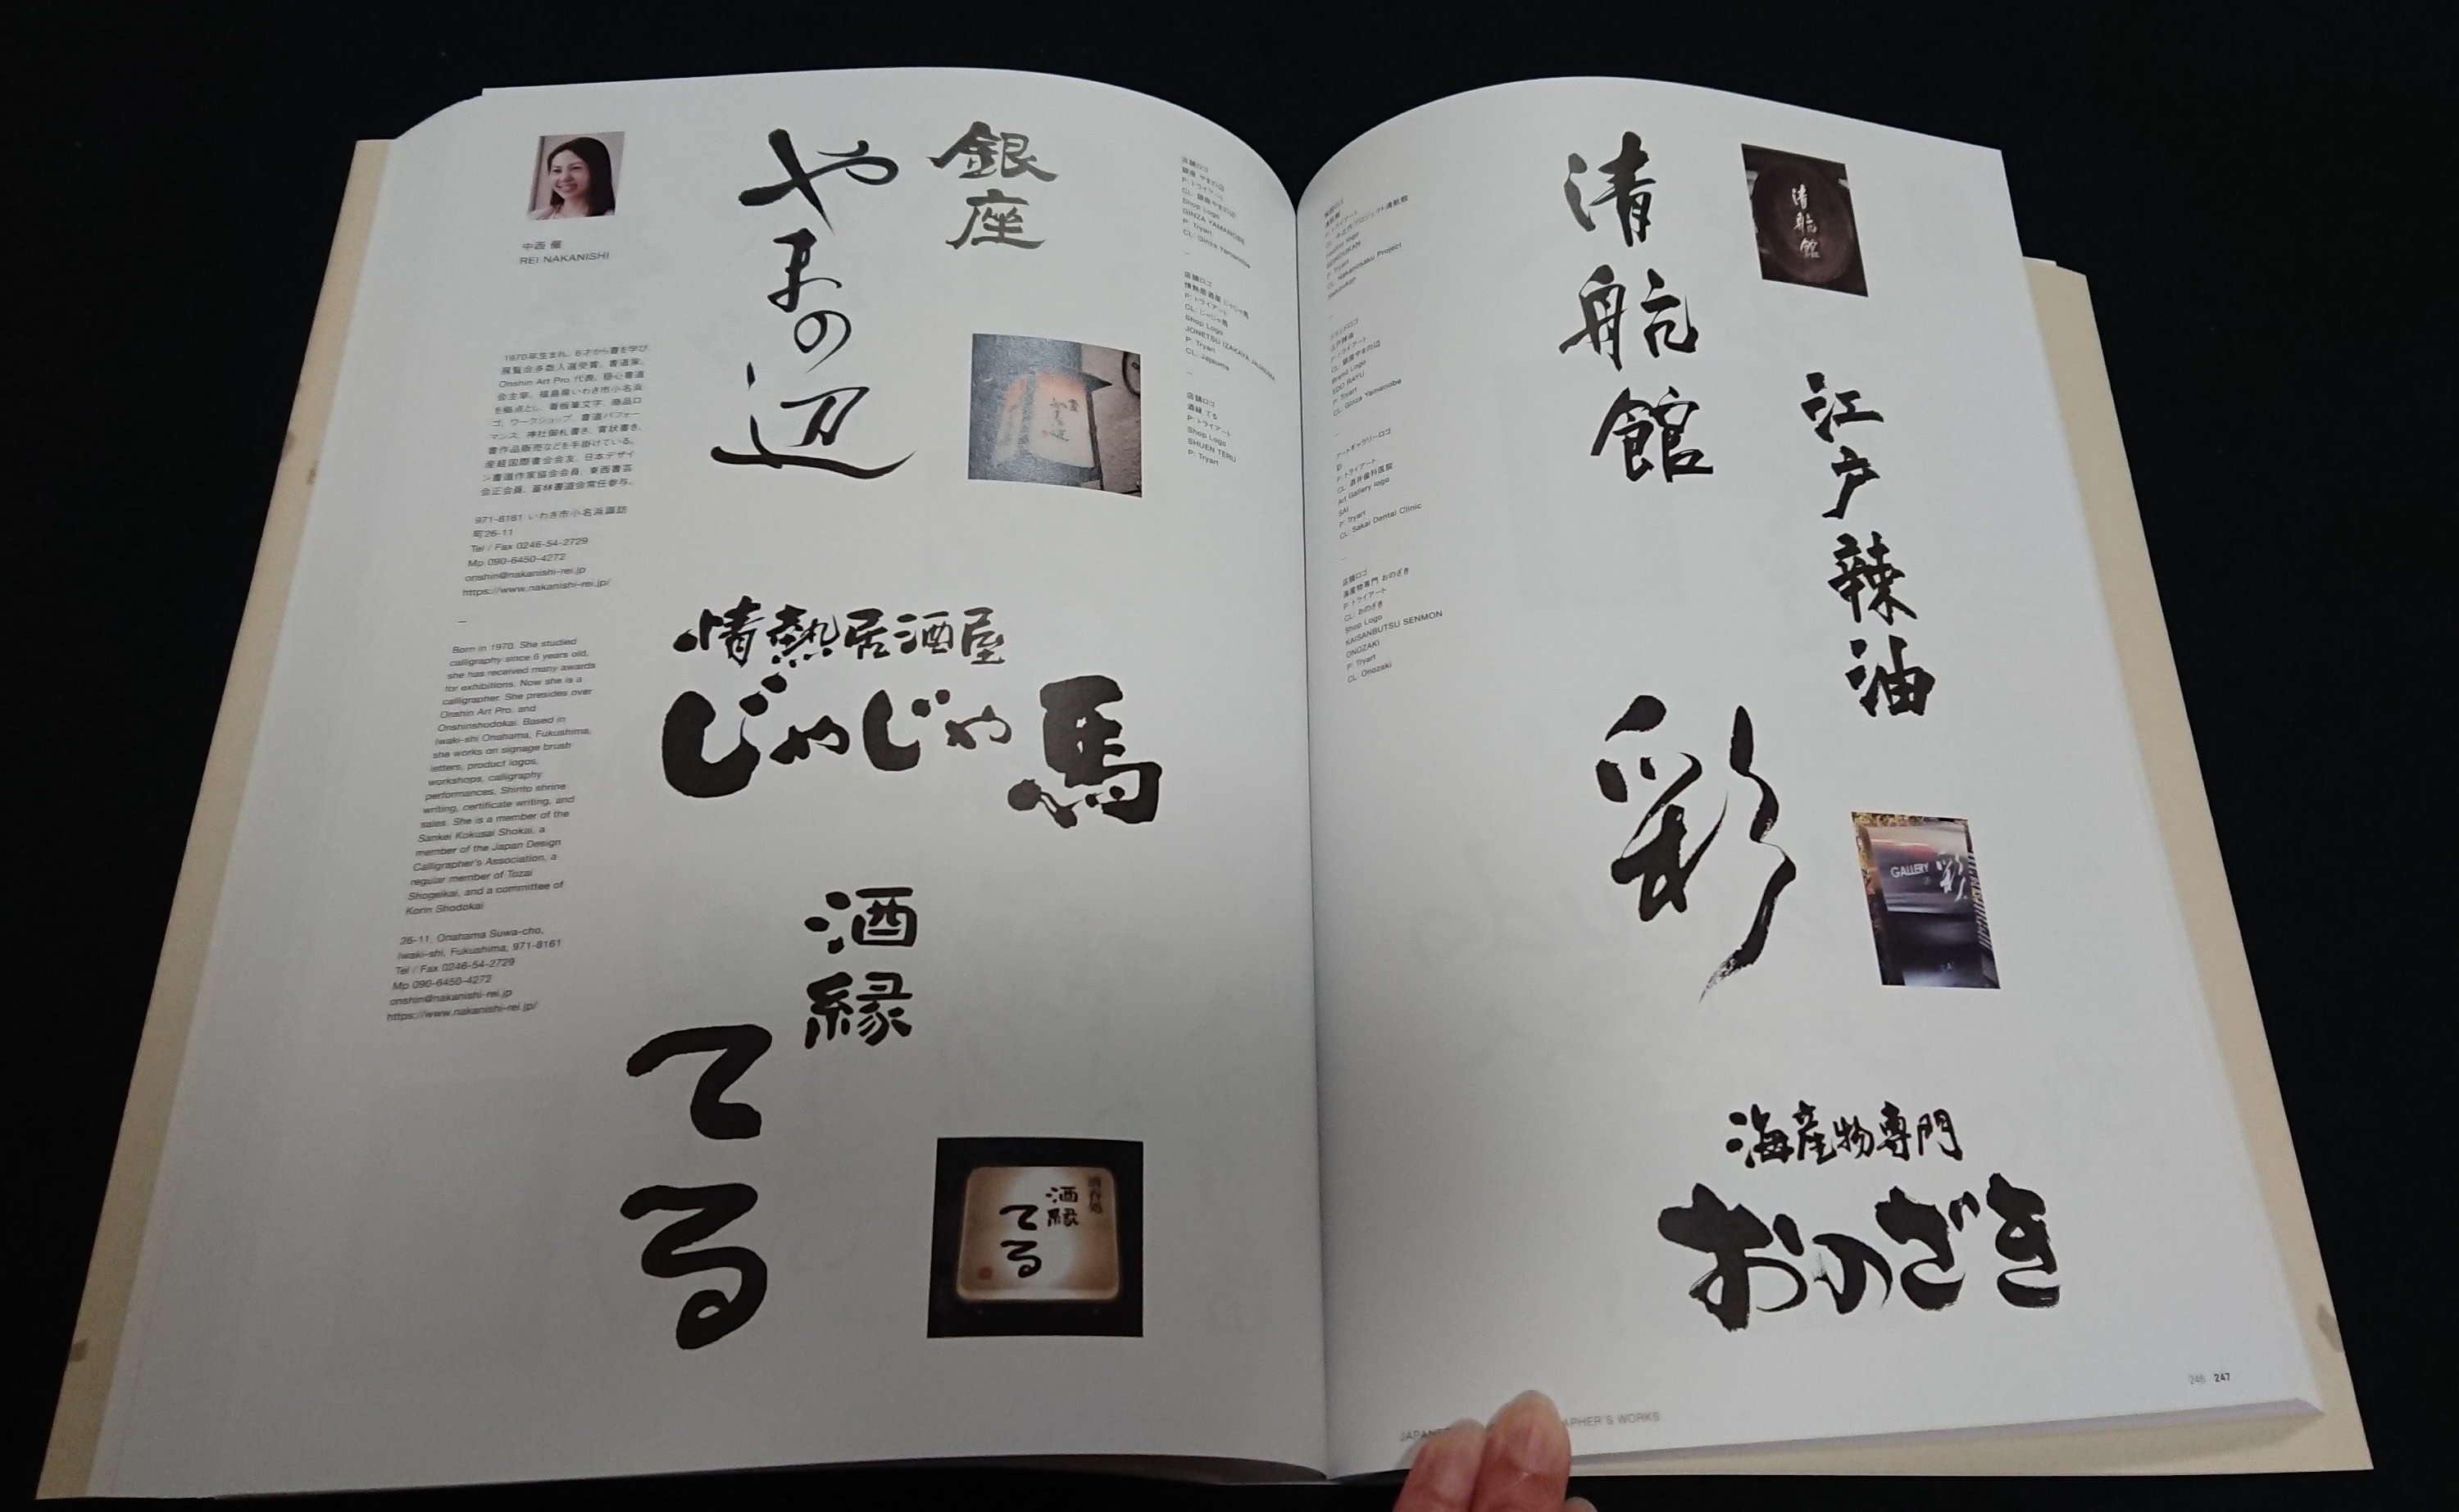 中西 優
REI NAKANISHI
1970年生まれ。6才から書を学び
展覧会多数入選受賞。書道家。
Onshin Art Pro. 代表。穏心書道
会主宰。福島県いわき市小名浜
を拠点とし、看板筆文字、商品ロ
ゴ、ワークショップ、書道パフォー
マンス、神社御札書き、賞状書き、
書作品販売などを手掛けている。
産経国際書会会友、日本デザイ
ン書道作家協会会員、東西書芸
会正会員、富林書道会常任参与。
971-8161 いわき市小名浜諏訪
町26-11
Tel / Fax 0246-54-2729
Mp 090-6450-4272
onshin@nakanishi-rei.jp
https://www.nakanishi-rei.jp/
Born in 1970. She studied
calligraphy since 6 years old,
she has received many awards
for exhibitions. Now she is a
calligrapher. She presides over
Onshin Art Pro. and
Onshinshodokai. Based in
Iwaki-shi Onahama, Fukushima,
she works on signage brush
letters, product logos,
workshops, calligraphy
performances, Shinto shrine
writing, certificate writing, and
sales. She is a member of the
Sankei Kokusai Shokai, a
member of the Japan Design
Calligrapher's Association, a
regular member of Tozai
Shogeikai, and a committee of
Korin Shodokai.
26-11, Onahama Suwa-cho,
Iwaki-shi, Fukushima, 971-8161
Tel / Fax 0246-54-2729
Mp 090-6450-4272
onshin@nakanishi-rei.jp
https://www.nakanishi-rei.jp/
銀座
やまの辺
情熱居酒屋
じゃじゃ馬
酒縁
てる
酒縁
てる
店舗ロゴ
銀座 やまの辺
P: トライアート
CL: 銀座やまの辺
Shop Logo
GINZA YAMANOBE
P: Tryart
CL: Ginza Yamanobe
店舗ロゴ
情熱居酒屋 じゃじゃ馬
P: トライアート
CL: じゃじゃ馬
Shop Logo
JONETSU IZAKAYA JAJAUMA
P: Tryart
CL: Jajauma
店舗ロゴ
酒縁 てる
P: トライアート
Shop Logo
SHUEN TERU
P: Tryart
P: Tryart
CL: Nakanosaku Project
Seikoukan
P: トライアート
CL: 銀座やまの辺
Brand Logo
EDO RAYU
P: Tryart
CL: Ginza Yamanobe
アートギャラリーロゴ
彩
P: トライアート
CL: 酒井歯科医院
Art Gallery logo
SAI
P: Tryart
CL: Sakai Dental Clinic
店舗ロゴ
海産物専門 おのざき
P: トライアート
CL: おのざき
Shop Logo
KAISANBUTSU SENMON
ONOZAKI
P: Tryart
CL: Onozaki
清航館
清航館
江戸辣油
彩
GALLERY 彩
海産物専門
おのざき
246 247
APHER'S WORKS